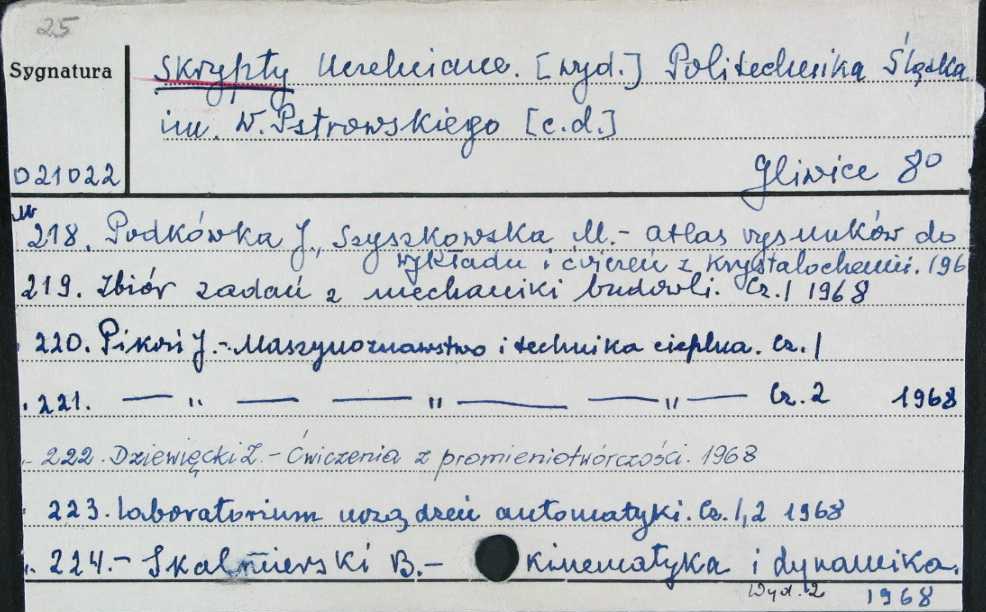 25
Sygnatura
Skrypty Uczelniane. [wyd.] Politechnika Śląska
im. W. Pstrowskiego [c.d.]
021022
Gliwice 8°
Nr 218. Podkówka J., Szyszkowska M. - Atlas rysunków do
wykładu i ćwiczeń z krystalochemii. 196
219. Zbiór zadań z mechaniki budowli. Cz. 1 1968
220. Pikoń J. - Maszynoznawstwo i technika cieplna. Cz. 1
221. — „ — — „ — — „ — Cz. 2 1968
222. Dziewięcki Z. - Ćwiczenia z promieniotwórczości. 1968
223. Laboratorium urządzeń automatyki. Cz. 1, 2 1968
224. - Skalmierski B. - Kinematyka i dynamika.
Wyd. 2 1968